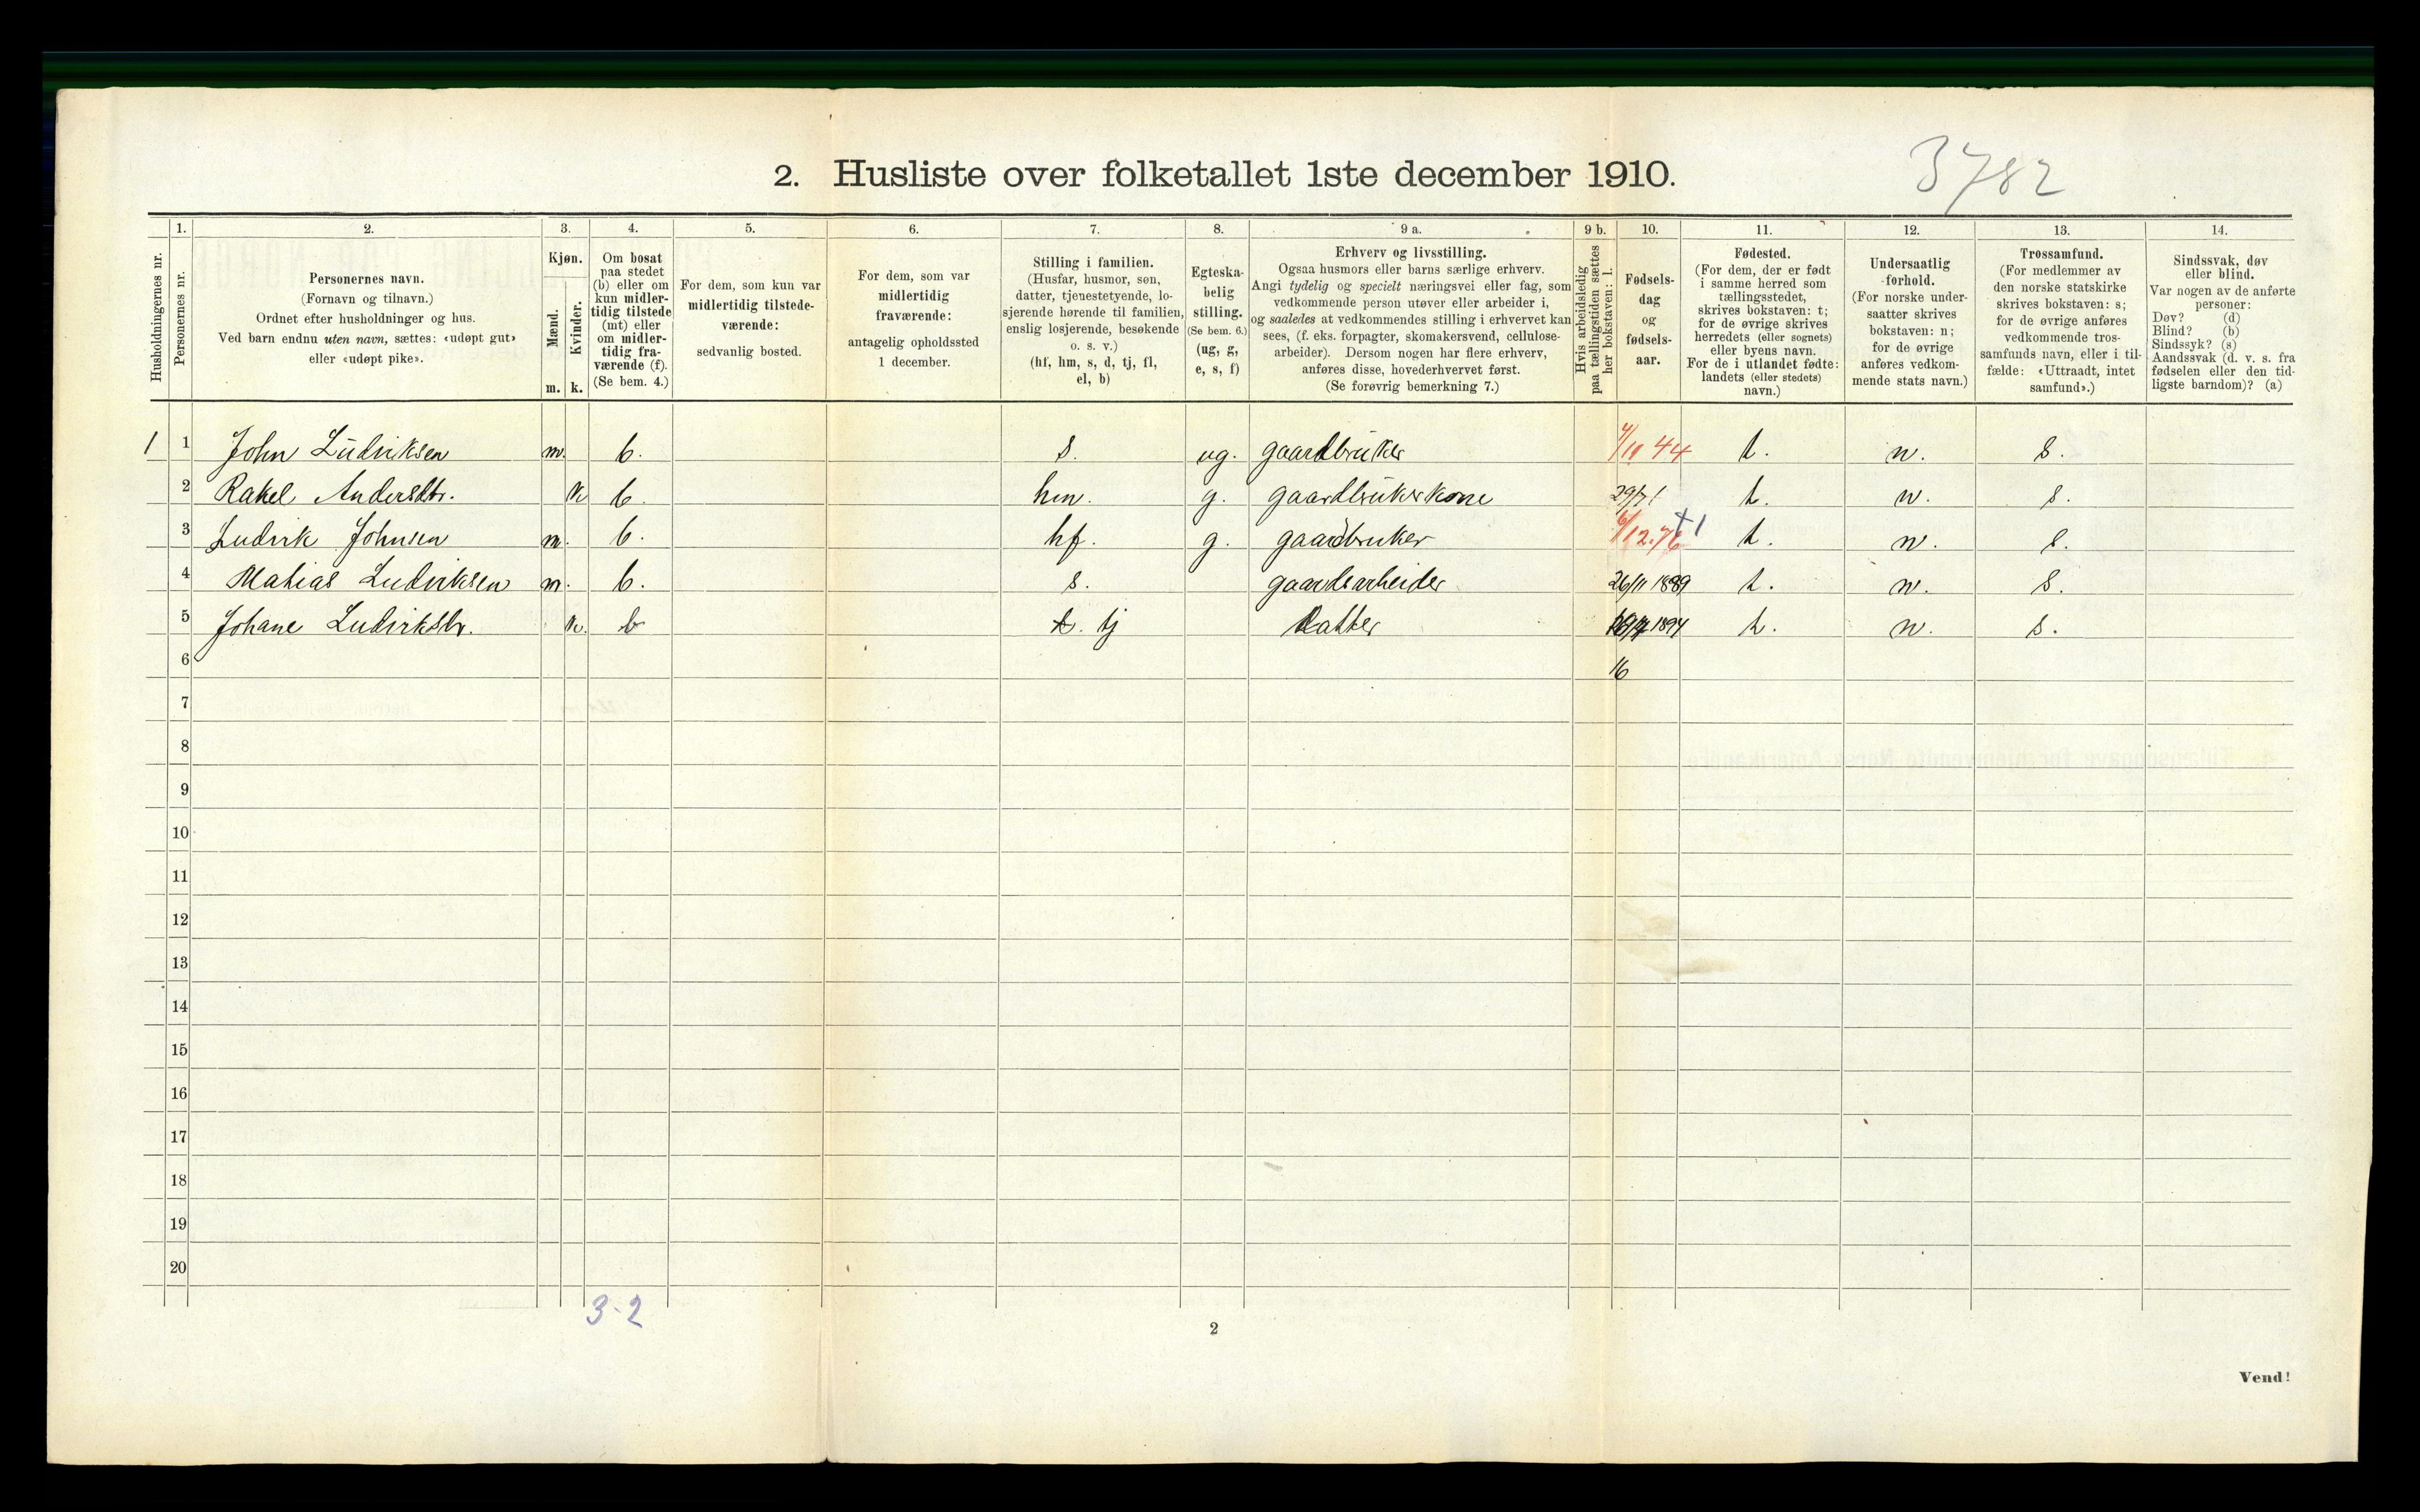 3782
2. Husliste over folketallet 1ste december 1910.
Husholdningernes nr.
1. Personernes nr.
2. Personernes navn.
(Fornavn og tilnavn.)
Ordnet efter husholdninger og hus.
Ved barn endnu uten navn, sættes: «udøpt gut»
eller «udøpt pike».
3. Kjøn.
Mænd. m.
Kvinder. k.
4. Om bosat
paa stedet
(b) eller om
kun midler-
tidig tilstede
(mt) eller
om midler-
tidig fra-
værende (f).
(Se bem. 4.)
5. For dem, som kun var
midlertidig tilstede-
værende:
sedvanlig bosted.
6. For dem, som var
midlertidig
fraværende:
antagelig opholdssted
1 december.
7. Stilling i familien.
(Husfar, husmor, søn,
datter, tjenestetyende, lo-
sjerende hørende til familien,
enslig losjerende, besøkende
o. s. v.)
(hf, hm, s, d, tj, fl,
el, b)
8. Egteska-
belig
stilling.
(Se bem. 6.)
(ug, g,
e, s, f)
9 a. Erhverv og livsstilling.
Ogsaa husmors eller barns særlige erhverv.
Angi tydelig og specielt næringsvei eller fag, som
vedkommende person utøver eller arbeider i,
og saaledes at vedkommendes stilling i erhvervet kan
sees, (f. eks. forpagter, skomakersvend, cellulose-
arbeider). Dersom nogen har flere erhverv,
anføres disse, hovederhvervet først.
(Se forøvrig bemerkning 7.)
9 b. Hvis arbeidsledig
paa tællingstiden sættes
her bokstaven: l.
10. Fødsels-
dag
og
fødsels-
aar.
11. Fødested.
(For dem, der er født
i samme herred som
tællingsstedet,
skrives bokstaven: t;
for de øvrige skrives
herredets (eller sognets)
eller byens navn.
For de i utlandet fødte:
landets (eller stedets)
navn.)
12. Undersaatlig
forhold.
(For norske under-
saatter skrives
bokstaven: n;
for de øvrige
anføres vedkom-
mende stats navn.)
13. Trossamfund.
(For medlemmer av
den norske statskirke
skrives bokstaven: s;
for de øvrige anføres
vedkommende tros-
samfunds navn, eller i til-
fælde: «Uttraadt, intet
samfund».)
14. Sindssvak, døv
eller blind.
Var nogen av de anførte
personer:
Døv? (d)
Blind? (b)
Sindssyk? (s)
Aandssvak (d. v. s. fra
fødselen eller den tid-
ligste barndom)? (a)
1 1 John Ludviksen m. b. s. ug. gaardbruker 44 t. n. s.
2 Rakel Andersdtr. k b. hm. g. gaardbrukerkone 29/7 1 t. n. s.
3 Ludvik Johnsen m. b. hf. g. gaardbruker 6/12.76 t. n. s.
4 Matias Ludviksen m. b. s. gaardsarbeider 26/11 1889 t. n. s.
5 Johane Ludviksdtr. k. b tj Datter 1894 t. n. s.
6 16
7
8
9
10
11
12
13
14
15
16
17
18
19
20
3-2
2
Vend!